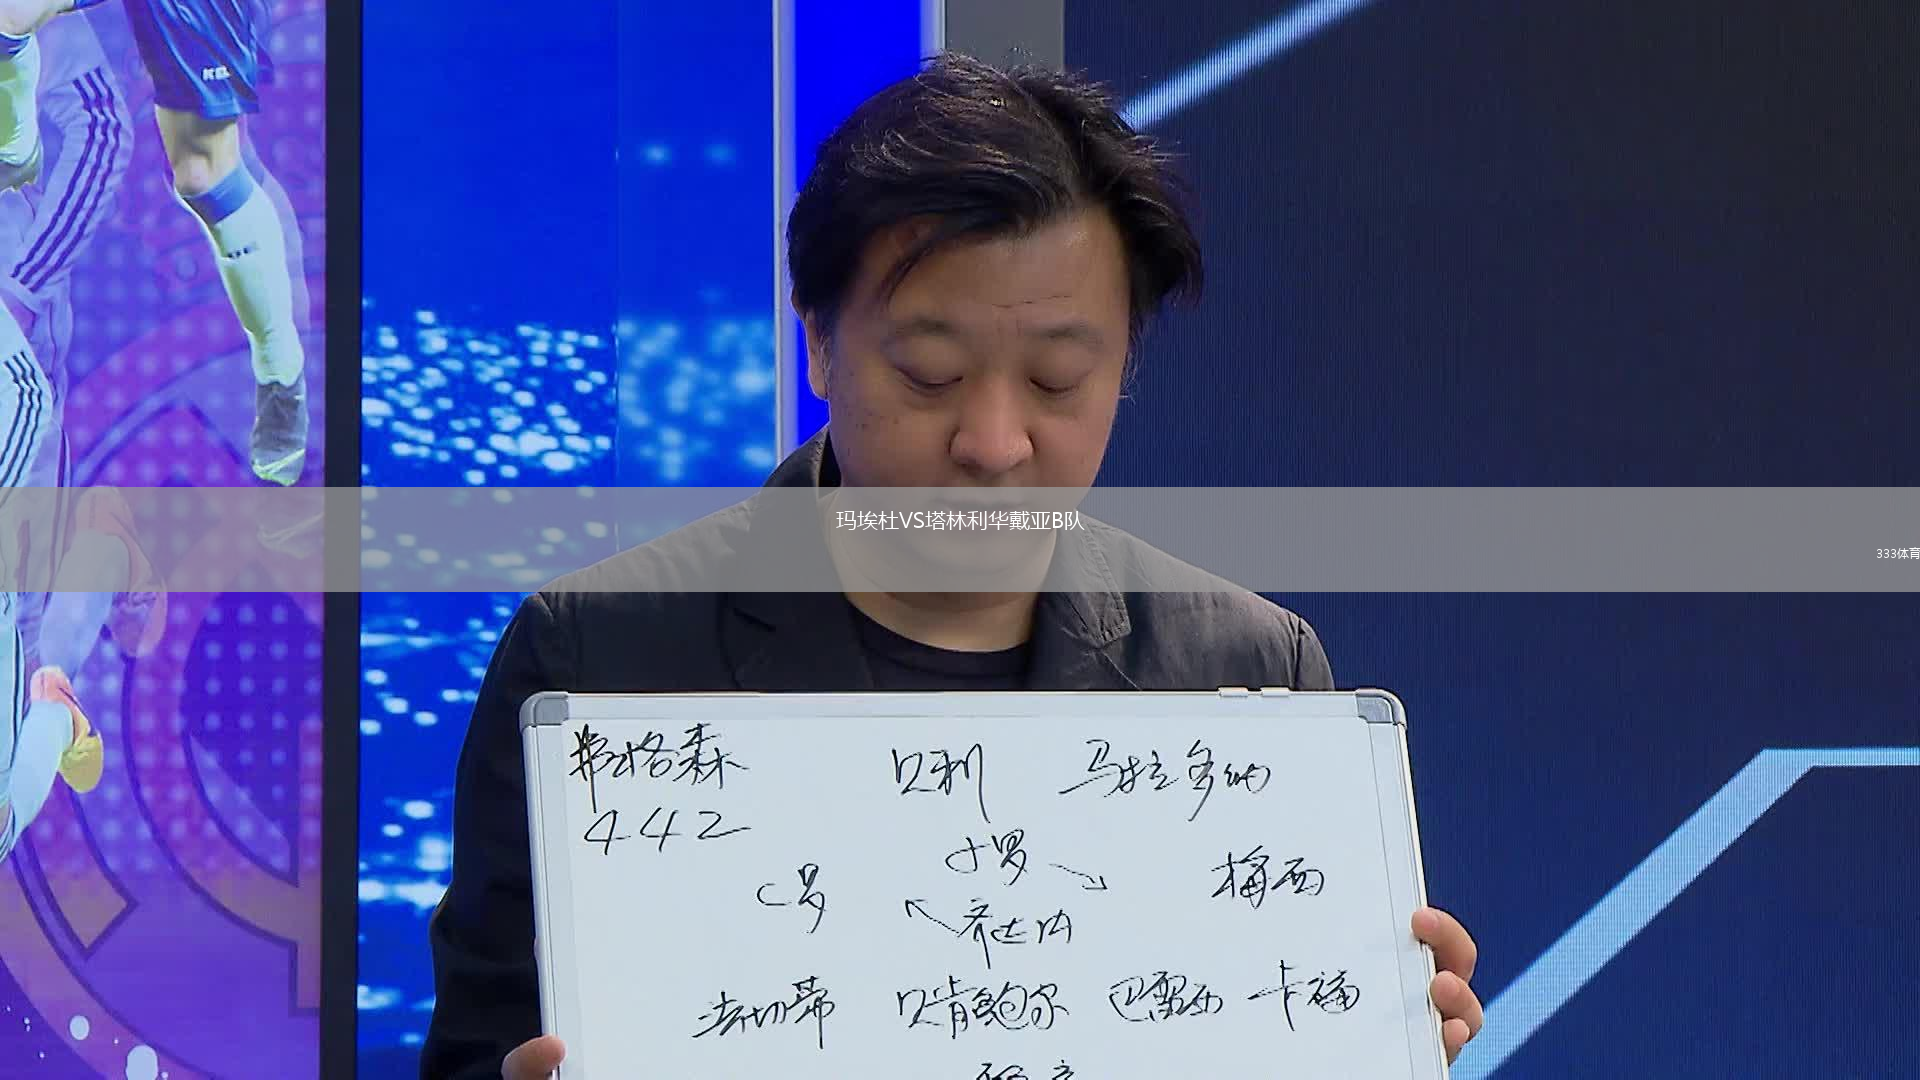 玛埃杜VS塔林利华戴亚B队
333体育
弗格森 贝利 马拉多纳
442
小罗
C罗 梅西
齐达内
法切蒂 贝肯鲍尔 巴雷西 卡福